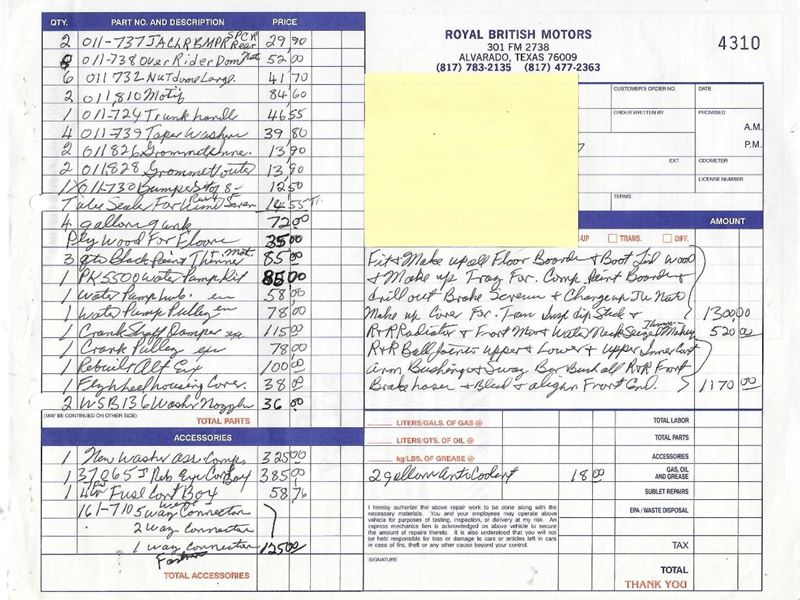 QTY. PART NO. AND DESCRIPTION PRICE
2 011-737 JACLR BMPR SPCR Rear 29 90
8 011-738 Over Rider Dom Nut 52 00
6 011 732 Nut dome Large. 41 70
2 011810 Motif 84 60
1 011-724 Trunk handle 46 55
4 011-739 Taper Washer 39 80
2 011826 Grommet Inne. 13 90
2 011828 Grommet outer 13 90
1 011-730 Bumper 12 50
Seale For 14 55
4 gallon gunk 72 00
Ply Wood For Floor 35 00
3 qts Black Paint Thinne Mat. 85 00
1 PK5500 Water Pump Kit 85 00
1 Water Pump hub. ex 58 00
1 Water Pump Pulley ex 78 00
1 Crank Shaft Damper ex. 115 00
1 Crank Pulley ex 78 00
1 Rebuilt Alt Ex 100 00
1 Flywheel housing Cover. 38 00
2 WSB136 Washr Nozzle 36 00
(MAY BE CONTINUED ON OTHER SIDE)
TOTAL PARTS
ACCESSORIES
1 New Washr ass Comp. 325 00
1 37065J Reb Exe Cont Box 385 00
1 Fuse Cont Box 58 76
161-710 5 way Connector
2 way Connector
1 way connector 125 00
TOTAL ACCESSORIES
ROYAL BRITISH MOTORS
301 FM 2738
ALVARADO, TEXAS 76009
(817) 783-2135 (817) 477-2363
4310
CUSTOMER'S ORDER NO. DATE
ORDER WRITTEN BY PROMISED
A.M.
P.M.
7
EXT. ODOMETER
LICENSE NUMBER
TERMS
AMOUNT
-UP TRANS. DIFF.
Fit & Make up all Floor Boards & Boot Lid Wood
& Make up Tray For. Comp. Paint Boards &
drill out Brake Screws & Change up Nut
Make up Cover For. Tran Insp dip Stick & 1300 00
R&R Radiator & Front Mor & Water Neck Seized 520 00
R&R Ball Joints upper & Lower & upper Inner Cont
arm Bushings & Sway Bar Bush all R&R Front
Brake hoses & Bleed & alignn Front End. 1170 00
LITERS/GALS. OF GAS @ TOTAL LABOR
LITERS/QTS. OF OIL @ TOTAL PARTS
kg/LBS. OF GREASE @ ACCESSORIES
2 gallon Anti Coolant 18 00 GAS, OIL AND GREASE
SUBLET REPAIRS
I hereby authorize the above repair work to be done along with the
necessary materials. You and your employees may operate above
vehicle for purposes of testing, inspection, or delivery at my risk. An
express mechanics lien is acknowledged on above vehicle to secure
the amount of repairs thereto. It is also understood that you will not
be held responsible for loss or damage to cars or articles left in cars
in case of fire, theft or any other cause beyond your control.
EPA / WASTE DISPOSAL
TAX
SIGNATURE
TOTAL
THANK YOU